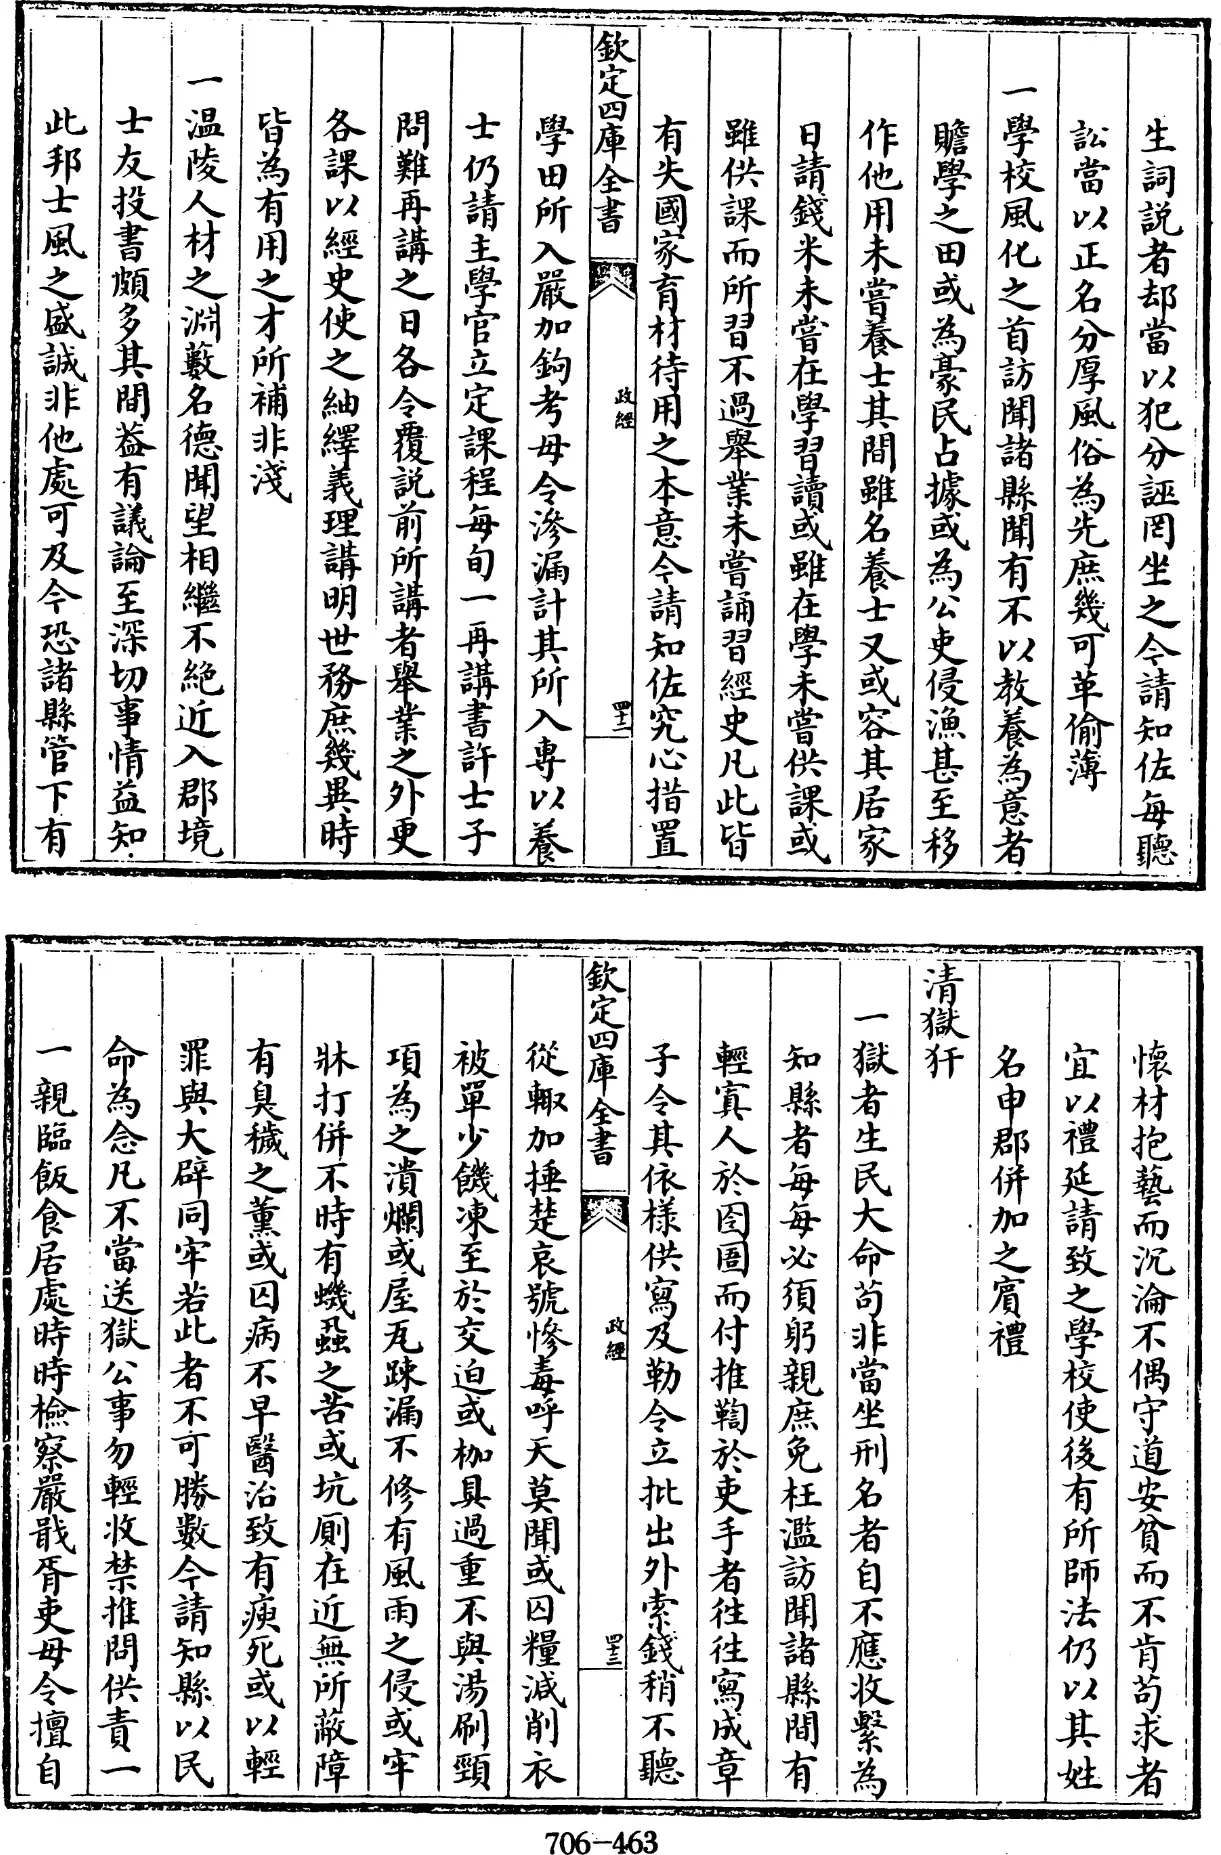 生詞説者却當以犯分誣罔坐之令請知佐每聽
訟當以正名分厚風俗為先庶幾可革偷薄
一學校風化之首訪聞諸縣聞有不以教養為意者
贍學之田或為豪民占據或為公吏侵漁甚至移
作他用未嘗養士其間雖名養士又或容其居家
日請錢米未嘗在學習讀或雖在學未嘗供課或
雖供課而所習不過舉業未嘗誦習經史凡此皆
有失國家育材待用之本意今請知佐究心措置
欽定四庫全書
政經
四十二
學田所入嚴加鉤考毋令滲漏計其所入專以養
士仍請主學官立定課程每旬一再講書許士子
問難再講之日各令覆説前所講者舉業之外更
各課以經史使之紬繹義理講明世務庶幾異時
皆為有用之才所補非淺
一温陵人材之淵藪名德聞望相繼不絶近入郡境
士友投書頗多其間葢有議論至深切事情益知
此邦士風之盛誠非他處可及今恐諸縣管下有
懷材抱藝而沉淪不偶守道安貧而不肯苟求者
宜以禮延請致之學校使後有所師法仍以其姓
名申郡併加之賔禮
清獄犴
一獄者生民大命苟非當坐刑名者自不應收繫為
知縣者每每必須躬親庶免枉濫訪聞諸縣間有
輕寘人於囹圄而付推鞫於吏手者徃徃寫成章
子令其依樣供寫及勒令立批出外索錢稍不聽
欽定四庫全書
政經
四十三
從輙加捶楚哀號慘毒呼天莫聞或囚糧減削衣
被單少饑凍至於交迫或枷具過重不與湯刷頸
項為之潰爛或屋瓦疎漏不修有風雨之侵或牢
牀打併不時有蟣蝨之苦或坑厠在近無所蔽障
有臭穢之薰或囚病不早醫治致有瘐死或以輕
罪與大辟同牢若此者不可勝數今請知縣以民
命為念凡不當送獄公事勿輕收禁推問供責一
一親臨飯食居處時時檢察嚴戢胥吏毋令擅自
706-463